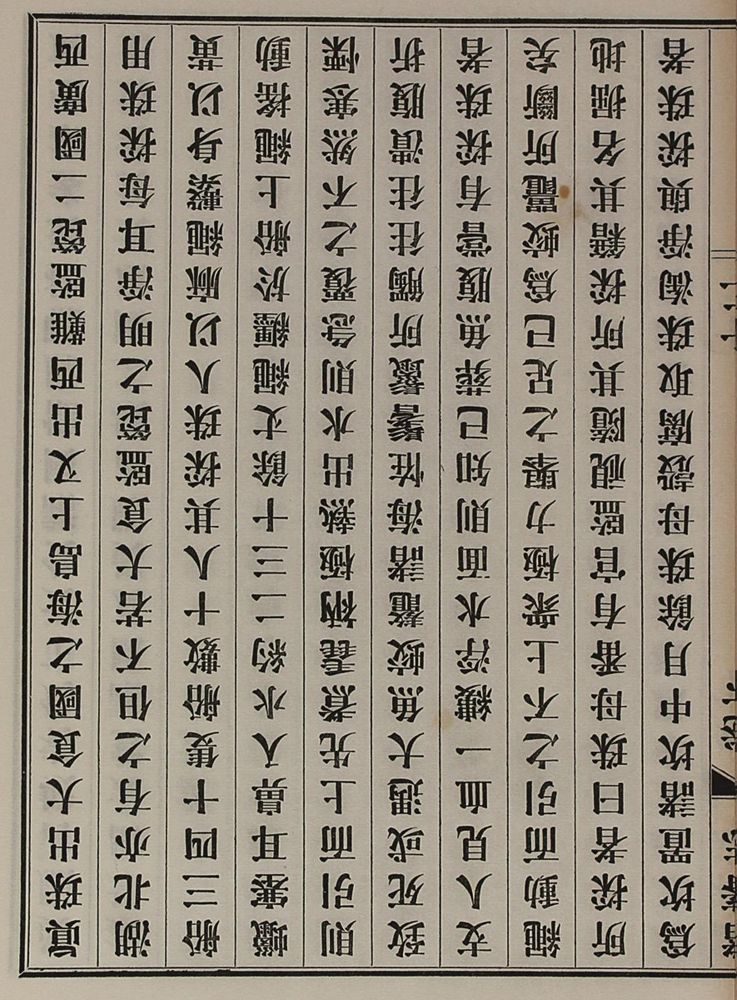 眞珠出大食國之海島上又出西難監篦二國廣西
湖北亦有之但不若大食監篦之明淨耳每採珠用
船三四十隻船數十人其採珠人以麻繩繫身以黃
蠟塞耳鼻入水約二三十餘丈繩纏於船上繩搖動
則引而上先煮毳衲極熱出水則急覆之不然寒慄
致死或遇大魚蛟鼉諸海怪鬐鬣所觸往往潰腹折
支人見血一縷浮水面則知已葬魚腹嘗有採珠者
繩動而引之不上衆極力舉之足已爲蛟鼉所斷矣
所採者曰珠母番有官監視隨其所採籍其名掘地
爲坎置諸坎中月餘珠母殼腐取珠淘淨與採珠者